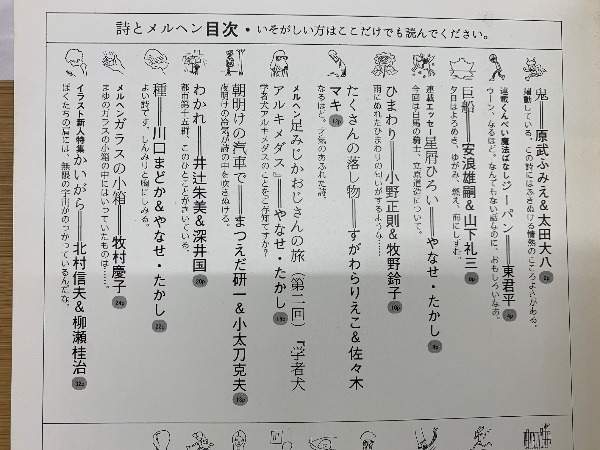 詩とメルヘン目次・いそがしい方はここだけでも読んでください。
鬼＝原武ふみえ&太田大八 2p
躍動している。この詩にはふきぬける情熱のこころよさがある。
連載くんぺい魔法ばなし ジーパン＝東君平 4p
ウーン、なるほど。なんでもない話なのに、おもしろいなあ。
巨船＝安浪雄嗣&山下礼三 6p
夕日はよろめき、ゆがみ、燃え、海にしずむ。
連載エッセー 星屑ひろい＝やなせ・たかし
今回は白馬の騎士、立原道造について。
ひまわり＝小野正則&牧野鈴子 10p
雨にぬれたひまわりの匂いがするような……
たくさんの落し物＝すがわらりえこ&佐々木
マキ 12p
なるほど。才気のあふれた詩。
メルヘン 足みじかおじさんの旅（第二回）『学者犬
アルキメダス』＝やなせ・たかし
学者犬アルキメダスのことをご存知ですか？
朝明けの汽車で＝まつえだ研一&小太刀克夫 18p
夜明けの冷気が詩の中を吹きぬける。
わかれ＝井辻朱美&深井国 20p
都市第十五群、このひとことがきいている。
種＝川口まどか&やなせ・たかし 22p
よい詩です。しんみりと胸にしみる。
メルヘン ガラスの小箱＝牧村慶子 24p
まゆのガラスの小箱の中にはいっていたものは……。
イラスト新人特集 かいがら＝北村信夫&柳瀬桂治 32p
ぼくたちの肩には、無限の宇宙がのっかっているんだな。